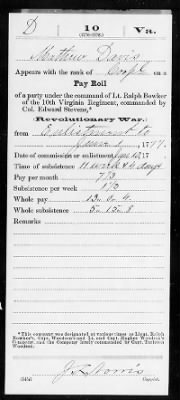 D 10 Va.
(678-0786)
Matthew Davis
Appears with the rank of Corpl on a
Pay Roll
of a party under the command of Lt. Ralph Bowker
of the 10th Virginia Regiment, commanded by
Col. Edward Stevens,*
Revolutionary War.
from Enlistment to
June 1, 1777.
Date of commission or enlistment 17
Time of subsistence
Pay per month 7 1/3
Subsistence per week
Whole pay 13. 0. 4.
Whole subsistence 5. 15. 8
Remarks
*This company was designated at various times as Lieut. Ralph
Bowker's, Capt. Woodson's and Lt. and Capt. Hughes Woodson's
Company, and the Company lately commanded by Capt. Tarleton
Woodson.
J. F. Norris
Copyist.